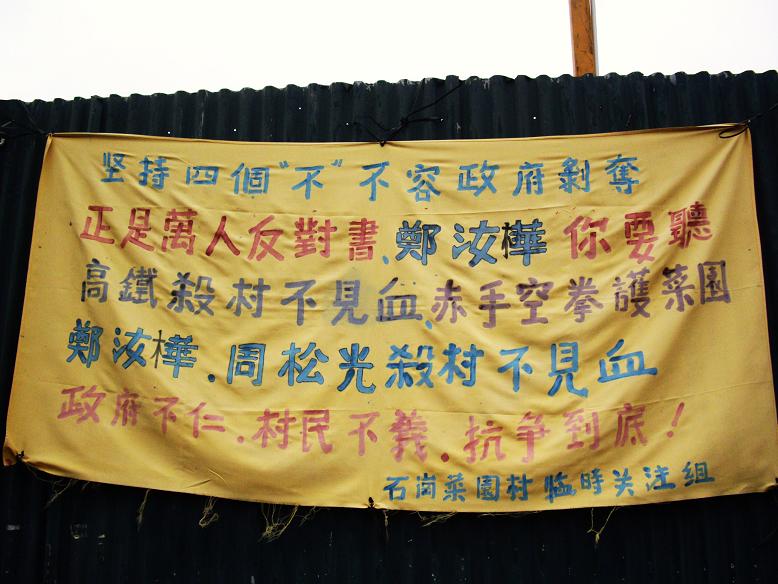 坚持四個"不"不容政府剝奪
正是萬人反對書、鄭汝樺你要聽
高鐵殺村不見血、赤手空拳護菜園
鄭汝樺．周松光殺村不見血
政府不仁．村民不義．抗爭到底！
石崗菜園村临時关注组